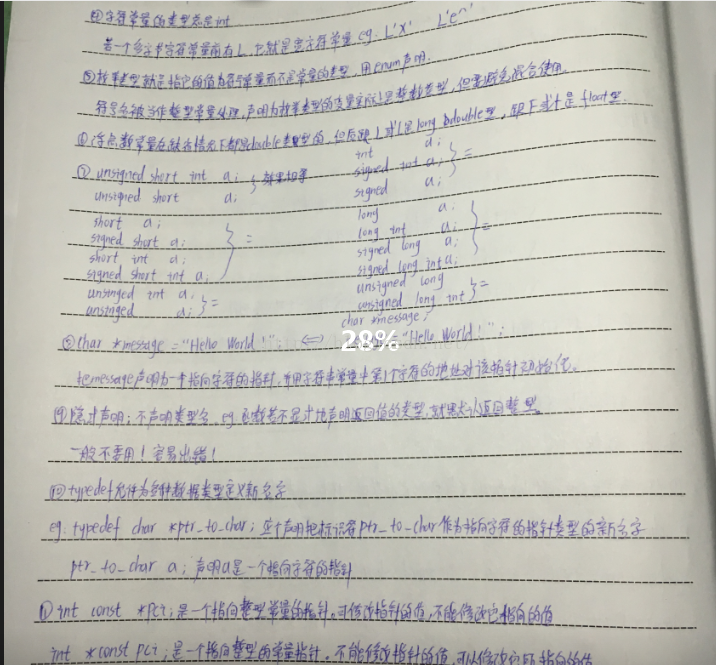 ③字符常量的类型总是int
若一个多字节字符常量前有L,它就是宽字符常量 eg. L'X' L'e^'
⑤枚举类型就是指它的值为符号常量而不是字面常量的类型,用enum声明.
符号名被当作整型常量处理,声明为枚举类型的变量实际上是整数类型,但要避免混合使用
⑥浮点数常量在缺省情况下都是double类型的,但后跟L或l是long double型,跟F或f是float型.
⑦ unsigned short int a; } 效果相等
unsigned short a;
int a;
signed int a; } =
signed a;
short a;
signed short a;
short int a; } =
signed short int a;
long a;
long int a;
signed long a; } =
signed long int a;
unsigned int a; } =
unsigned a;
unsigned long
unsigned long int } =
char *message;
⑧char *message = "Hello World!"; <=> "Hello World!";
message声明为一个指向字符的指针,并用字符串常量中第1个字符的地址对该指针初始化.
⑨隐式声明:不声明类型名. eg. 函数若不显式地声明返回值的类型,就默认返回整型.
一般不要用!容易出错!
⑩typedef允许为各种数据类型定义新名字
eg. typedef char *ptr_to_char; 这个声明把标识符ptr_to_char作为指向字符的指针类型的新名字
ptr_to_char a; 声明a是一个指向字符的指针
⑪ int const *pci; 是一个指向整型常量的指针.可修改指针的值,不能修改它指向的值
int *const pci; 是一个指向整型的常量指针. 不能修改指针的值,可以修改它所指向的值
28%